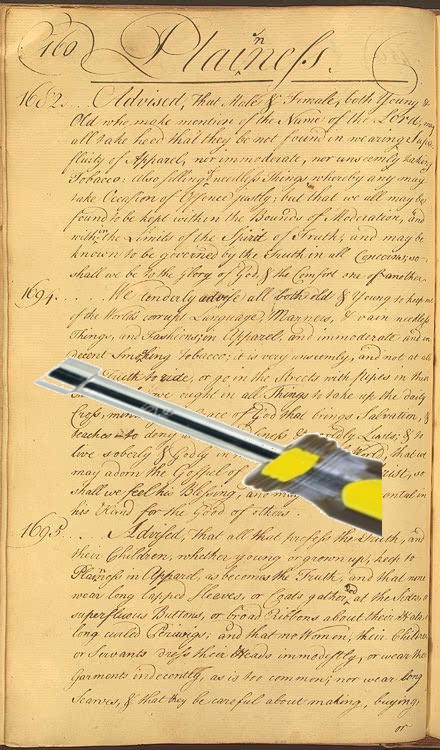 160 Plainness.
1682... Advised, That Male & Female, both Young &
Old who make mention of the Name of the Lord, may
all take heed that they be not found in wearing Supe
fluity of Apparel, nor immoderate, nor unseemly taking
Tobacco: Also selling needless Things whereby any may
take Occasion of Offence justly; but that we all may be
found to be kept within the Bounds of Moderation, and
within the Limits of the Spirit of Truth; and may be
known to be governed by the Truth in all Concerns, so
shall we be to the Glory of God, & the Comfort one of another.
1694.... We tenderly advise all both old & Young to keep
of the World's corrupt Language, Manners, & vain needless
Things, and Fashions, in Apparel, and immoderate and in
decent Smoking Tobacco; it is very unseemly, and not at all
Truth to ride, or go in the Streets with Pipes in their
we ought in all Things to take up the daily
Cross, of God that brings Salvation, &
teaches to deny Worldly Lusts, & to
live soberly & Godly in that we
may adorn the Gospel of so
shall we feel his Blessing, and may
his Hand for the Good of others.
1695... Advised, That all that profess the Truth, and
their Children, whether young or grown up, keep to
Plainness in Apparel, as becomes the Truth, and that none
wear long lapped Sleeves, or Coats gathered at the Sides, or
superfluous Buttons, or broad Ribbons about their Hats, or
long curled Perriwigs, and that no Women, their Children
or Servants dress their Heads immodestly, or wear their
Garments indecently, as is too common; nor wear long
Scarves, & that they be careful about making, buying,
or